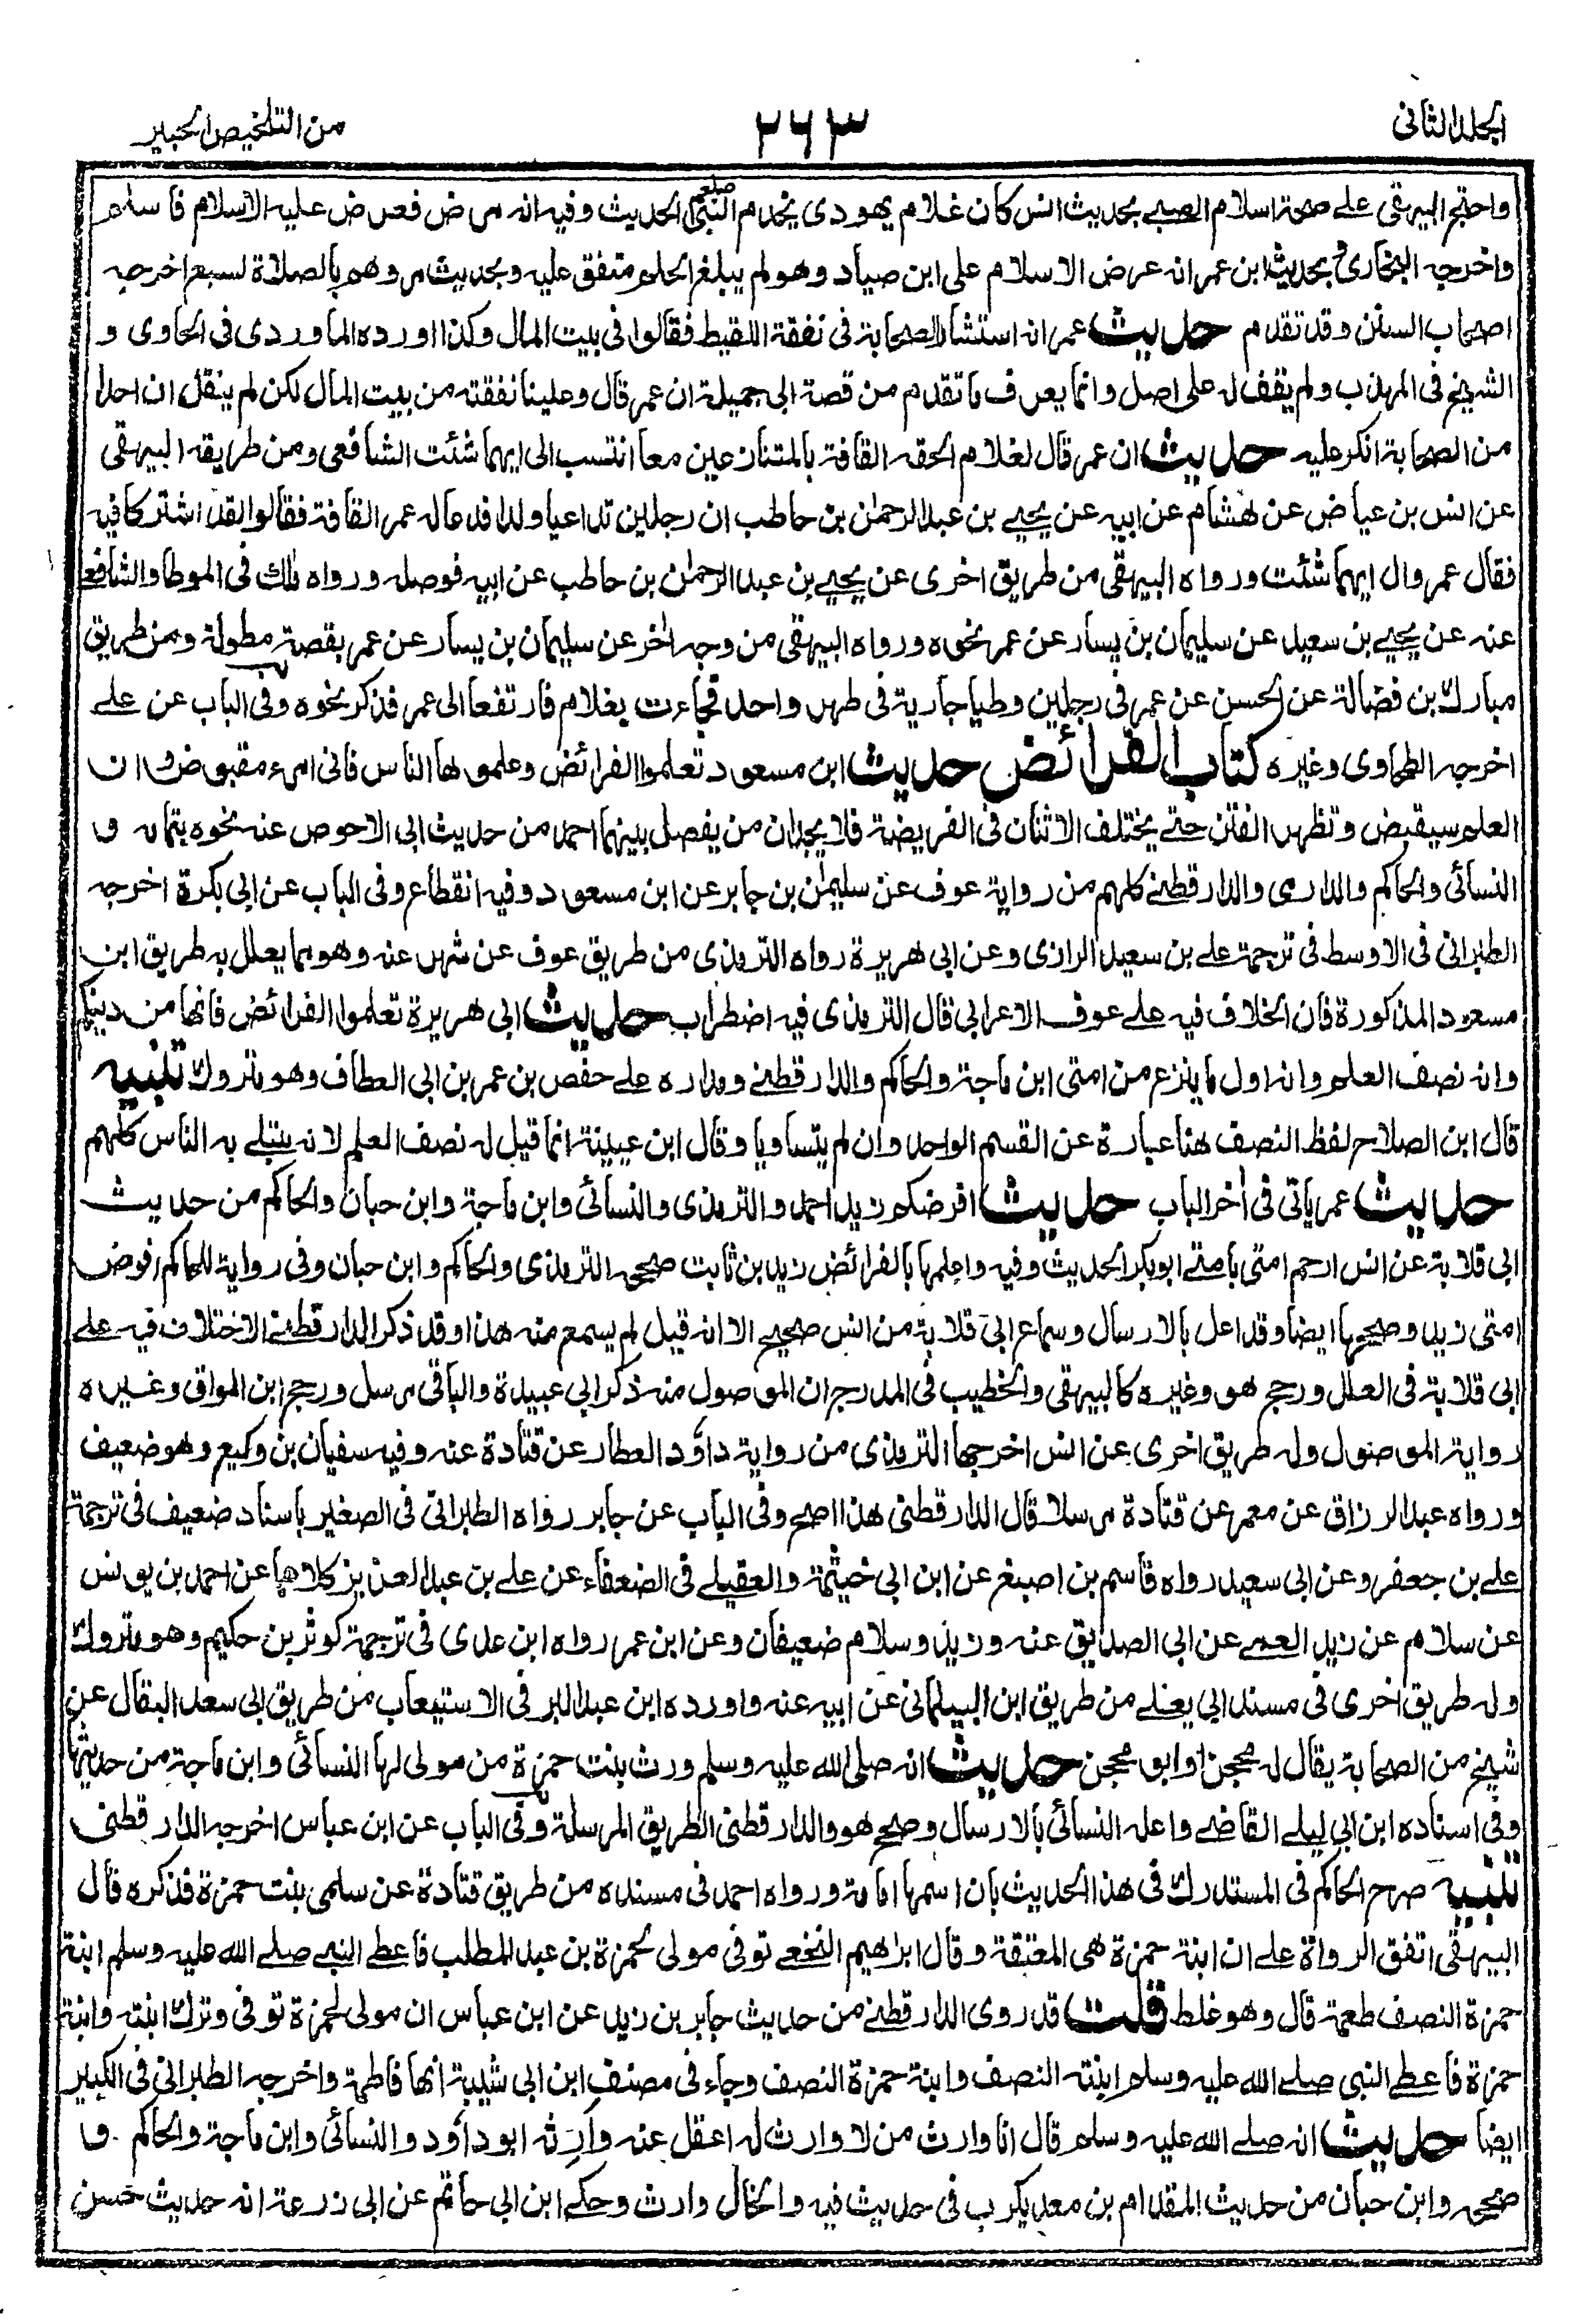 الجلد الثانى
٢٦٣
من التلخيص الحبير
واحتج البيهقى على صحة اسلام الصبي بحديث انس كان غلام يهودى يخدم النبى صلعم الحديث وفيه انه مرض فعرض عليه الاسلام فاسلم
واخرجه البخارى وبحديث ابن عمر انه عرض الاسلام على ابن صياد وهو لم يبلغ الحلم متفق عليه وبحديث مروهم بالصلاة لسبع اخرجه
اصحاب السنن وقد تقدم حديث عمر انه استشار الصحابة فى نفقة اللقيط فقالوا فى بيت المال وكذا اورده الماوردى فى الحاوى و
الشيخ فى المهذب ولم يقف له على اصل وانما يعرف ما تقدم من قصة ابى جميلة ان عمر قال وعلينا نفقته من بيت المال لكن لم ينقل ان احدا
من الصحابة انكر عليه حديث ان عمر قال لغلام الحقه القافة بالمتنازعين معا انتسب الى ايهما شئت الشافعى ومن طريقه البيهقى
عن انس بن عياض عن هشام عن ابيه عن يحيى بن عبد الرحمن بن حاطب ان رجلين تداعيا ولدا فدعا له عمر القافة فقالوا لقد اشتركا فيه
فقال عمر وال ايهما شئت ورواه البيهقى من طريق اخرى عن يحيى بن عبد الرحمن بن حاطب عن ابيه فوصله ورواه مالك فى الموطا والشافعى
عنه عن يحيى بن سعيد عن سليمان بن يسار عن عمر نحوه ورواه البيهقى من وجه اخر عن سليمان بن يسار عن عمر بقصة مطولة ومن طريق
مبارك بن فضالة عن الحسن عن عمر فى رجلين وطيا جارية فى طهر واحد فجاءت بغلام فارتفعا الى عمر فذكر نحوه وفى الباب عن على
اخرجه الطحاوى وغيره كتاب الفرائض حديث ابن مسعود تعلموا الفرائض وعلموها الناس فانى امرء مقبوض وان
العلم سيقبض وتظهر الفتن حتى يختلف الاثنان فى الفريضة فلا يجدان من يفصل بينهما احمد من حديث ابى الاحوص عنه نحوه بتمامه و
النسائى والحاكم والدارمى والدارقطنى كلهم من رواية عوف عن سليمن بن جابر عن ابن مسعود وفيه انقطاع وفى الباب عن ابى بكرة اخرجه
الطبرانى فى الاوسط فى ترجمة على بن سعيد الرازى وعن ابى هريرة رواه الترمذى من طريق عوف عن شهر عنه وهو مما يعلل به طريق ابن
مسعود المذكورة فان الخلاف فيه على عوف الاعرابى قال الترمذى فيه اضطراب حديث ابى هريرة تعلموا الفرائض فانها من دينكم
وانه نصف العلم وانه اول ما ينزع من امتى ابن ماجة والحاكم والدارقطنى ومداره على حفص بن عمر بن ابى العطاف وهو متروك تنبيه
قال ابن الصلاح لفظ النصف هنا عبارة عن القسم الواحد وان لم يتساويا وقال ابن عيينة انما قيل له نصف العلم لانه يبتلى به الناس كلهم
حديث عمر ياتى فى اخر الباب حديث افرضكم زيد احمد والترمذى والنسائى وابن ماجة وابن حبان والحاكم من حديث
ابى قلابة عن انس ارحم امتى بامتى ابوبكر الحديث وفيه واعلمها بالفرائض زيد بن ثابت صححه الترمذى والحاكم وابن حبان وفى رواية للحاكم افرض
امتى زيد وصححها ايضا وقد اعل بالارسال وسماع ابى قلابة من انس صحيح الا انه قيل لم يسمع منه هذا وقد ذكر الدارقطنى الاختلاف فيه على
ابى قلابة فى العلل ورجح هو وغيره كالبيهقى والخطيب فى المدرج ان الموصول منه ذكر ابى عبيدة والباقى مرسل ورجح ابن المواق وغيره
رواية الموصول وله طريق اخرى عن انس اخرجها الترمذى من رواية داؤد العطار عن قتادة عنه وفيه سفيان بن وكيع وهو ضعيف
ورواه عبد الرزاق عن معمر عن قتادة مرسلا قال الدارقطنى هذا اصح وفى الباب عن جابر رواه الطبرانى فى الصغير باسناد ضعيف فى ترجمة
على بن جعفر وعن ابى سعيد رواه قاسم بن اصبغ عن ابن ابى خيثمة والعقيلى فى الضعفاء عن على بن عبد العزيز كلاهما عن احمد بن يونس
عن سلام عن زيد العمى عن ابى الصديق عنه وزيد وسلام ضعيفان وعن ابن عمر رواه ابن عدى فى ترجمة كوثر بن حكيم وهو متروك
وله طريق اخرى فى مسند ابى يعلى من طريق ابن البيلمانى عن ابيه عنه واورده ابن عبد البر فى الاستيعاب من طريق ابى سعد البقال عن
شيخ من الصحابة يقال له محجن او ابو محجن حديث انه صلى الله عليه وسلم ورث بنت حمزة من مولى لها النسائى وابن ماجة من حديثها
وفى اسناده ابن ابى ليلى القاضى واعله النسائى بالارسال وصحح هو والدارقطنى الطريق المرسلة وفى الباب عن ابن عباس اخرجه الدارقطنى
تنبيه صرح الحاكم فى المستدرك فى هذا الحديث بان اسمها امامة ورواه احمد فى مسنده من طريق قتادة عن سلمى بنت حمزة فذكره قال
البيهقى اتفق الرواة على ان ابنة حمزة هى المعتقة وقال ابراهيم النخعى توفى مولى لحمزة بن عبد المطلب فاعطى النبى صلى الله عليه وسلم ابنة
حمزة النصف طعمة قال وهو غلط قلت قد روى الدارقطنى من حديث جابر بن زيد عن ابن عباس ان مولى لحمزة توفى وترك ابنته وابنة
حمزة فاعطى النبى صلى الله عليه وسلم ابنته النصف وابنة حمزة النصف وجاء فى مصنف ابن ابى شيبة انها فاطمة واخرجه الطبرانى فى الكبير
ايضا حديث انه صلى الله عليه وسلم قال انا وارث من لا وارث له اعقل عنه وارثه ابو داؤد والنسائى وابن ماجة والحاكم و
صححه وابن حبان من حديث المقدام بن معديكرب فى حديث فيه والخال وارث وحكى ابن ابى حاتم عن ابى زرعة انه حديث حسن